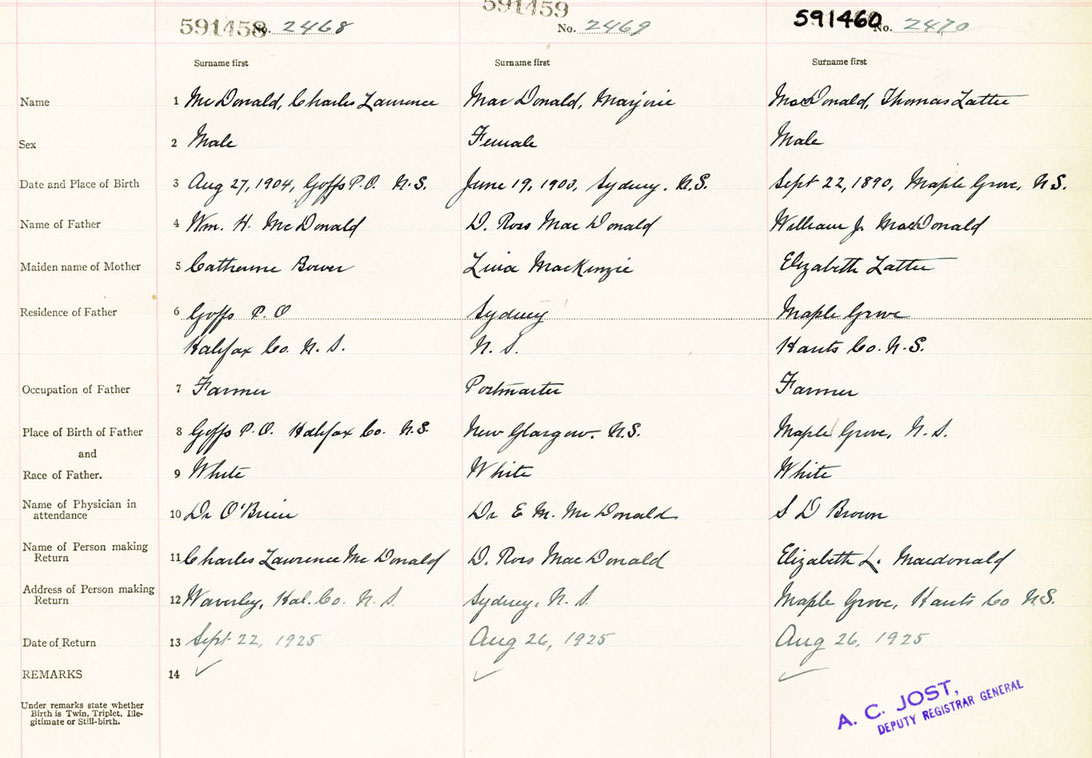 591458 No. 2468 591459 No. 2469 591460 No. 2470
Surname first Surname first Surname first
Name 1 McDonald, Charles Lawrence MacDonald, Marjorie MacDonald, Thomas Lattie
Sex 2 Male Female Male
Date and Place of Birth 3 Aug 27, 1904, Goffs P.O. N.S. June 19, 1903, Sydney. N.S. Sept 22, 1890, Maple Grove, N.S.
Name of Father 4 Wm. H. McDonald D. Ross MacDonald William J. MacDonald
Maiden name of Mother 5 Catherine Bower MacKenzie Elizabeth Lattie
Residence of Father 6 Goffs P.O Sydney Maple Grove
Halifax Co. N.S. N.S. Hants Co. N.S.
Occupation of Father 7 Farmer Postmaster Farmer
Place of Birth of Father 8 Goffs P.O. Halifax Co. N.S. New Glasgow. N.S. Maple Grove, N.S.
and
Race of Father. 9 White White White
Name of Physician in
attendance 10 Dr O'Brien Dr E. M. McDonald S D Brown
Name of Person making
Return 11 Charles Lawrence McDonald D. Ross MacDonald Elizabeth L. Macdonald
Address of Person making
Return 12 Waverley, Hal. Co. N.S. Sydney, N.S. Maple Grove, Hants Co N.S.
Date of Return 13 Sept 22, 1925 Aug 26, 1925 Aug 26, 1925
REMARKS 14 ✓ ✓ ✓
Under remarks state whether
Birth is Twin, Triplet, Ille-
gitimate or Still-birth.
A. C. JOST,
DEPUTY REGISTRAR GENERAL